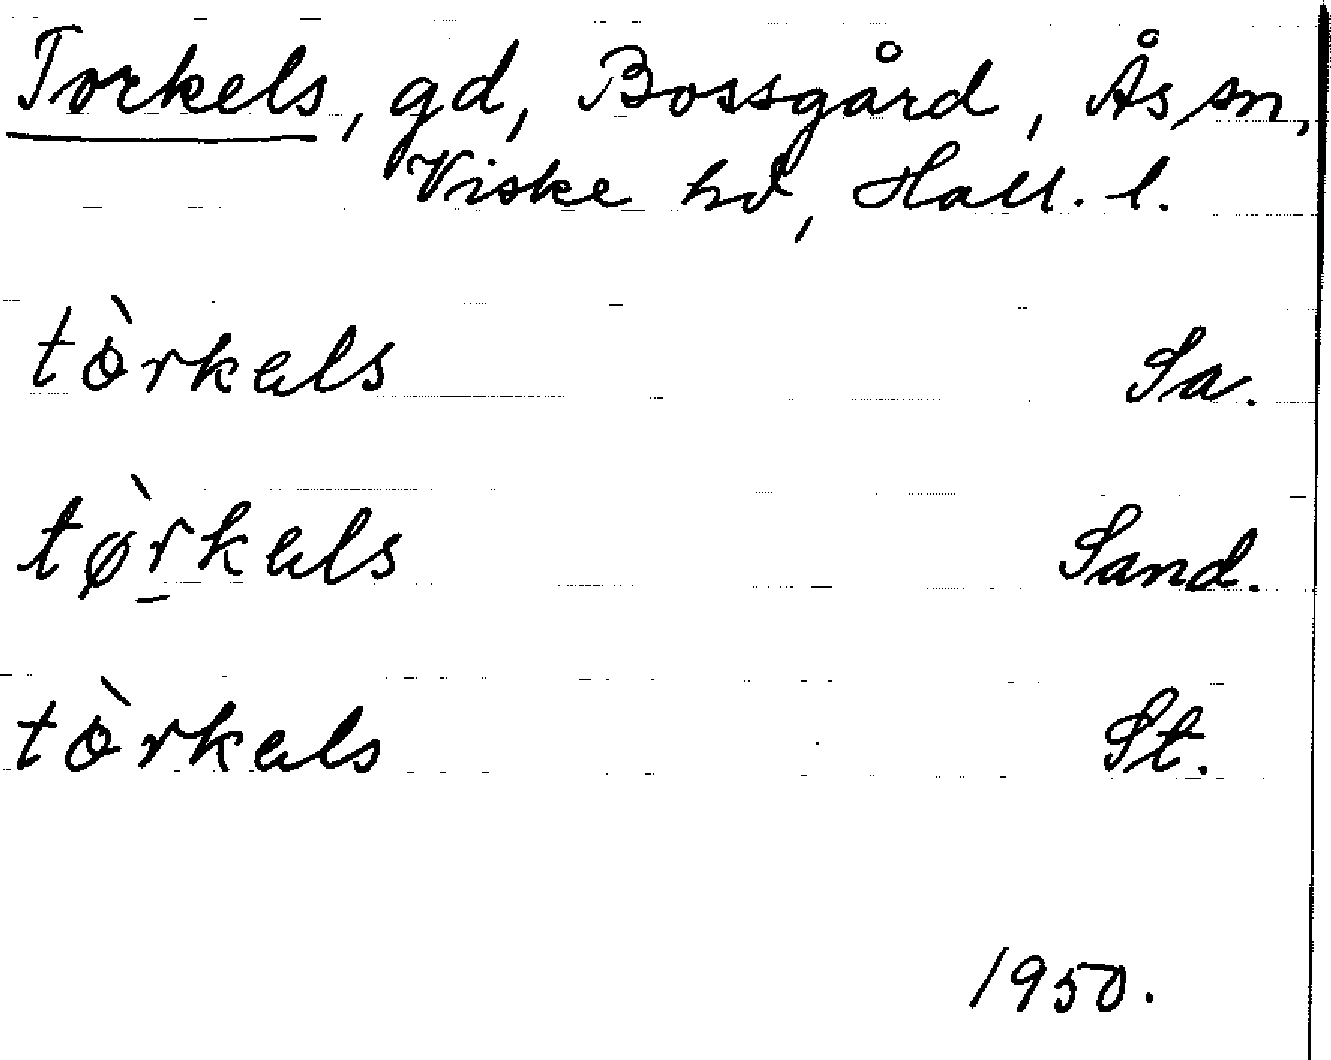 Torkels, gd, Bossgård, Ås sn,
Viske hd, Hall. l.
tòrkəls Sa.
tø̀rkəls Sand.
tòrkəls St.
1950.